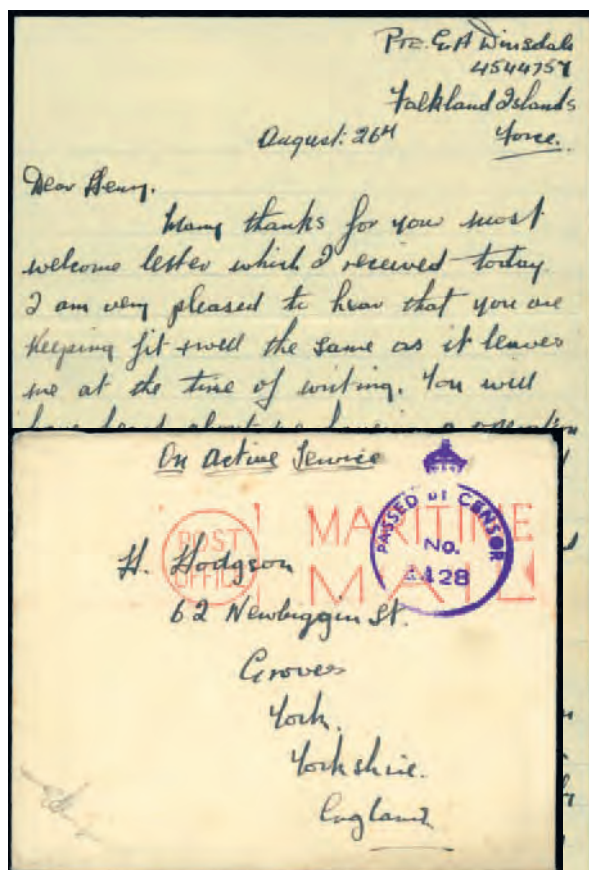 Pte. G A Dinsdale
4544757
Falkland Islands
August. 26th Force.
Dear Henry.
Many thanks for you most
welcome letter which I received today
I am very pleased to hear that you are
Keeping fit + well the same as it leaves
me at the time of writing. You will
have heard about me having a operation
On Active Service
PASSED BY CENSOR
No.
428
POST
OFFICE
MARITIME
MAIL
H. Hodgson
62 Newbiggin St.
Groves
York.
Yorkshire.
England